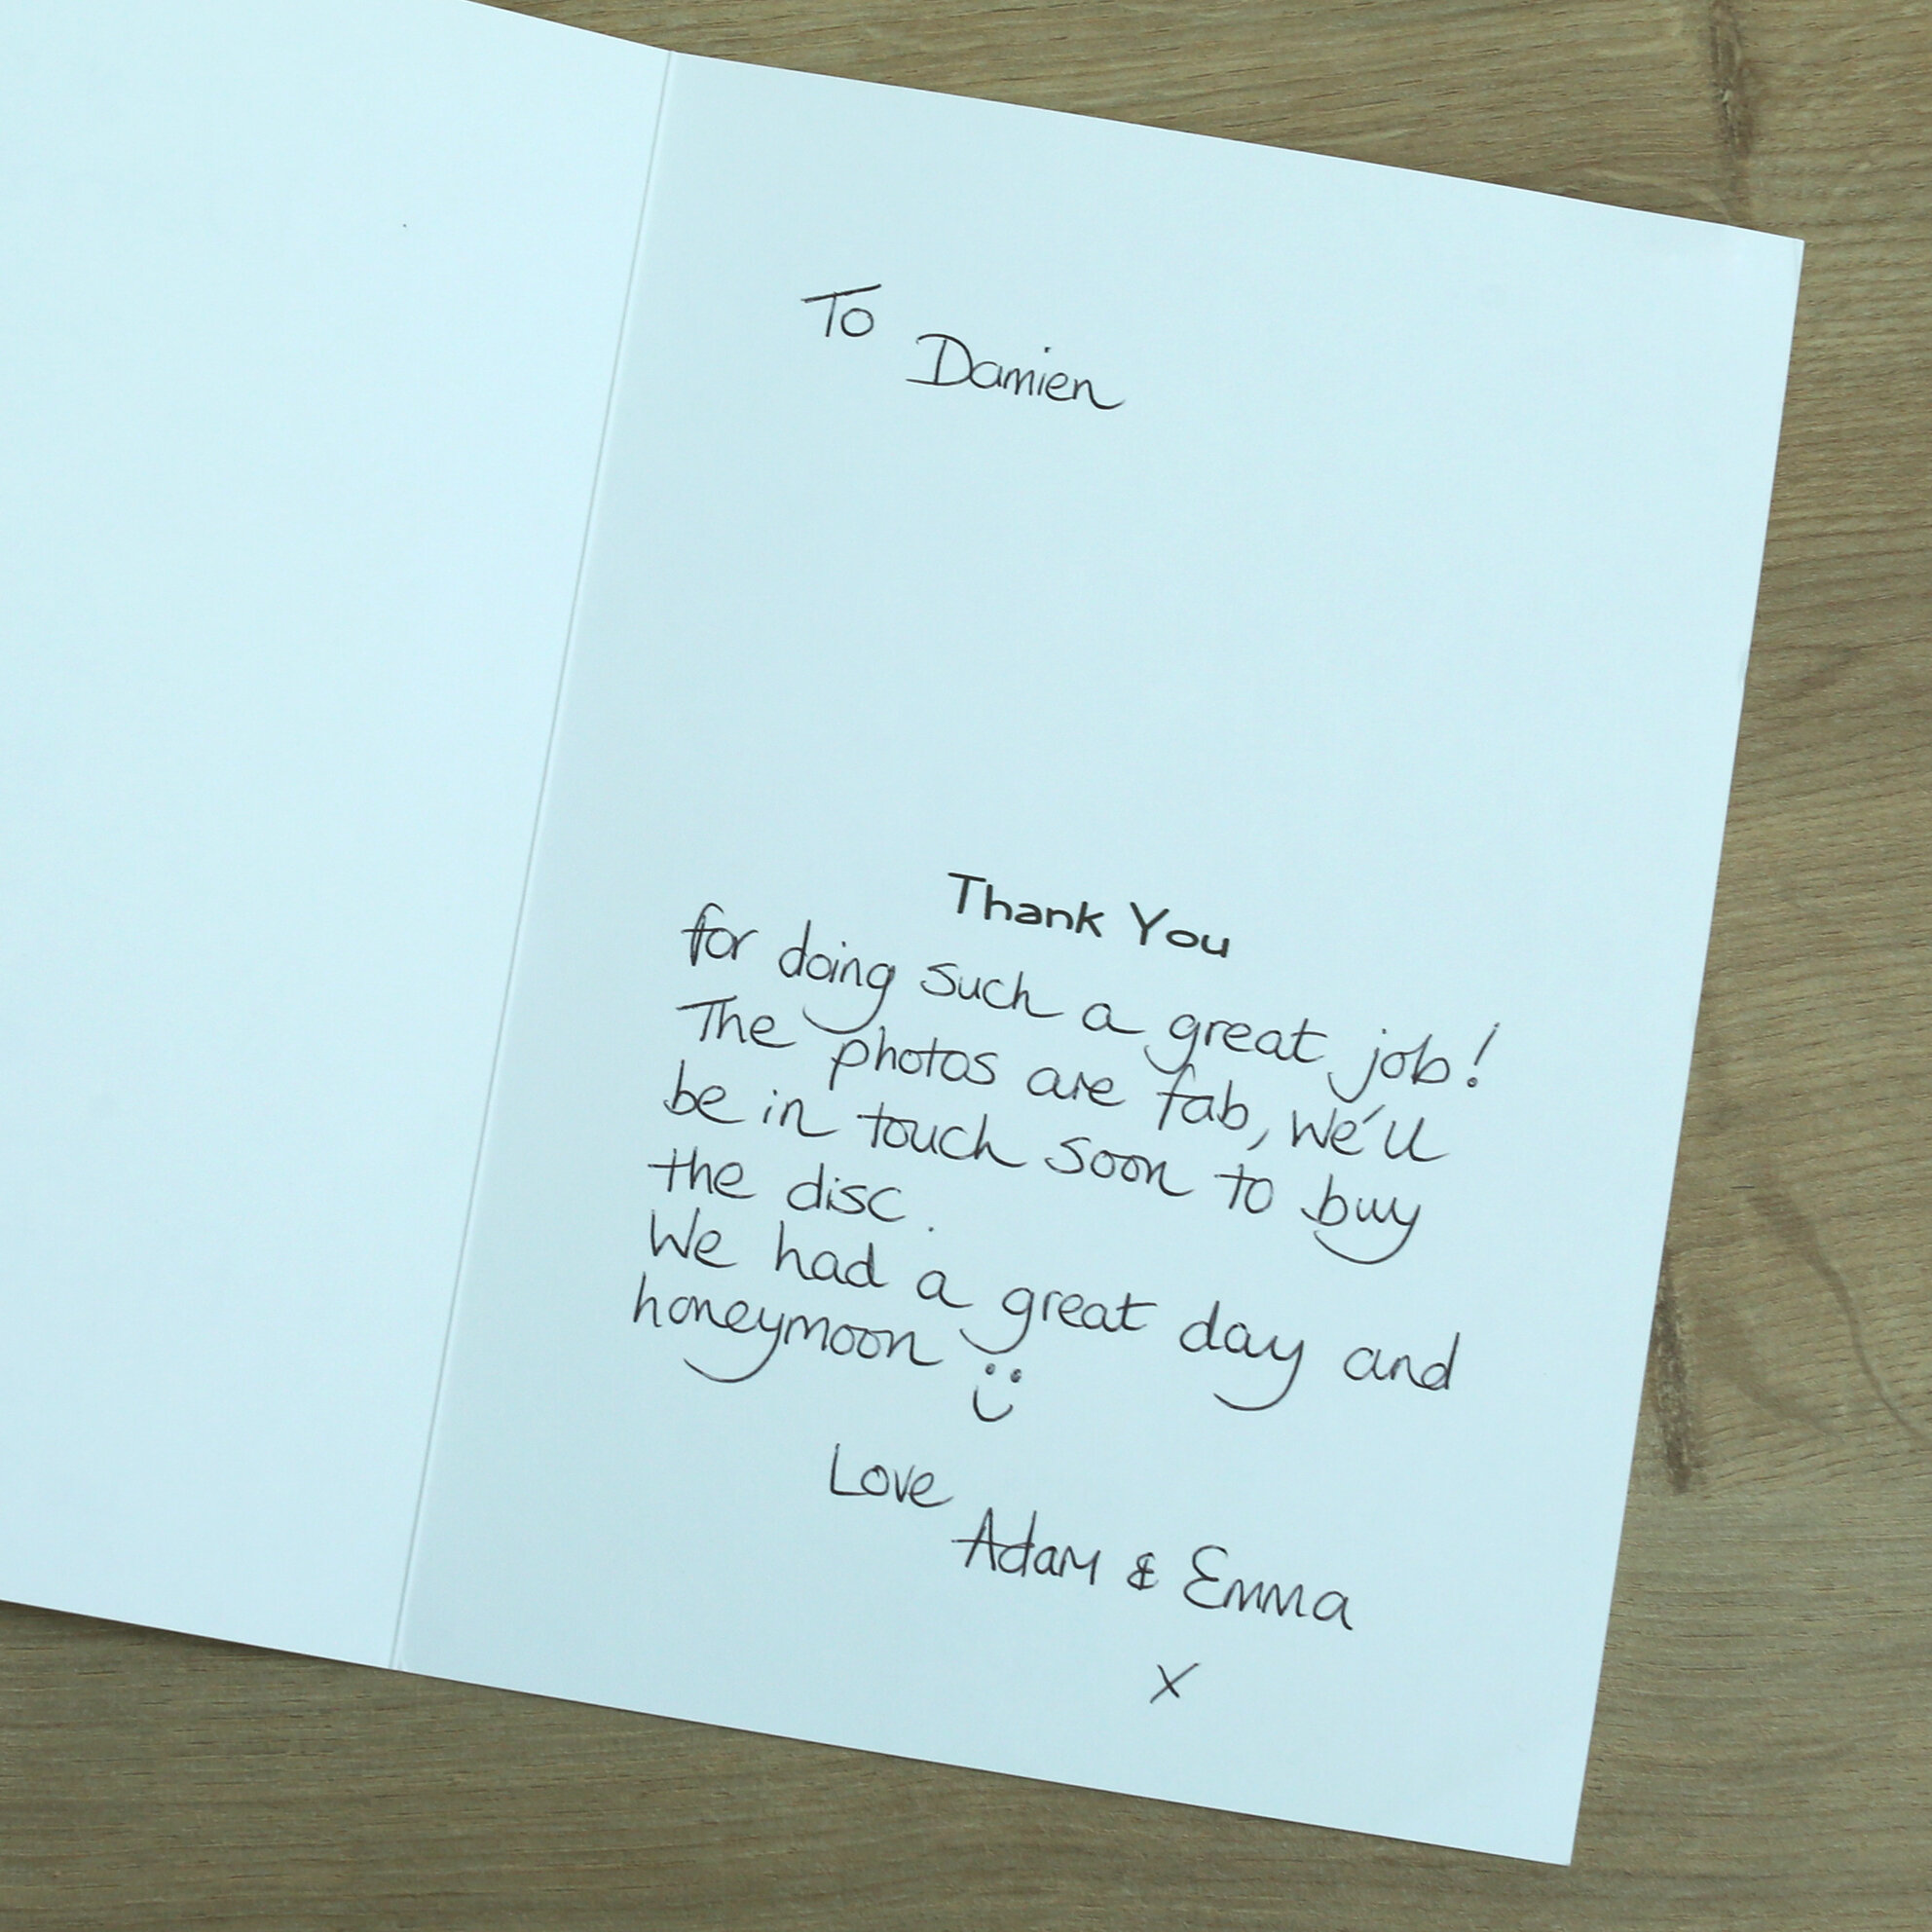 To
Damien
Thank You
for doing such a great job!
The photos are fab, we'll
be in touch soon to buy
the disc.
We had a great day and
honeymoon :)
Love
Adam & Emma
x